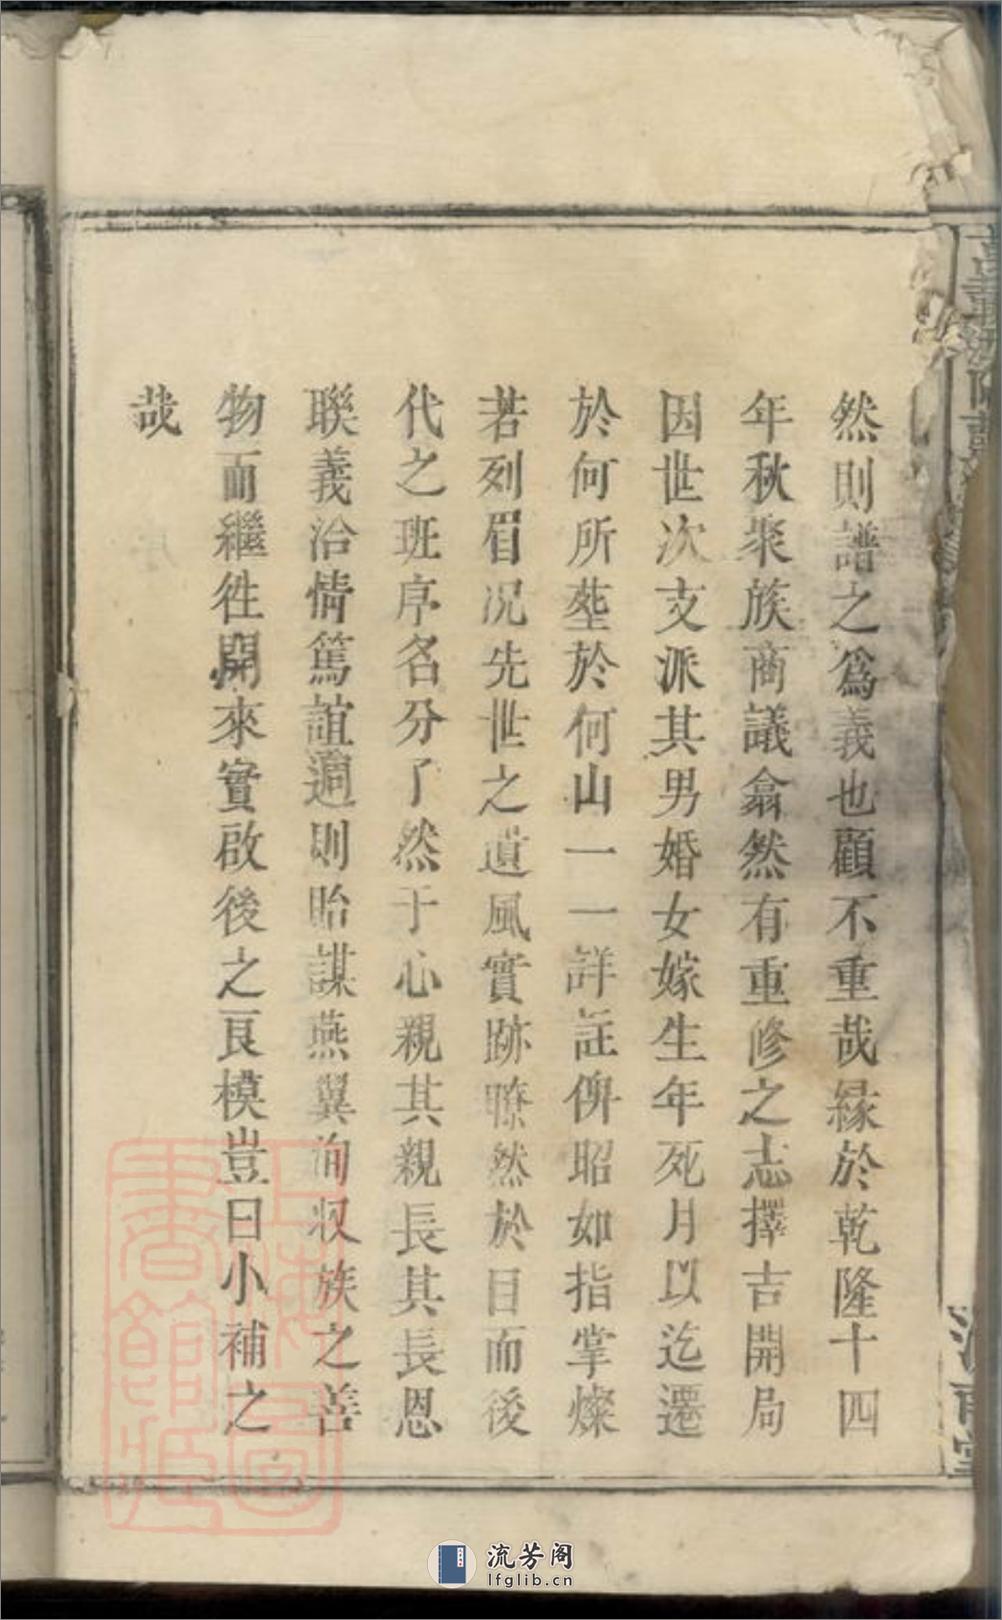 然則譜之爲義也顧不重哉緣於乾隆十四
年秋聚族商議翕然有重修之志擇吉開局
因世次支派其男婚女嫁生年死月以迄遷
於何所塟於何山一一詳註俾昭如指掌燦
若列眉况先世之遺風實跡瞭然於目而後
代之班序名分了然于心親其親長其長恩
聯義治情篤誼週則貽謀燕翼洵収族之善
物而繼徃開來實啟後之良模豈曰小補之
哉
上海圖書館藏
流芳阁
lfglib.cn